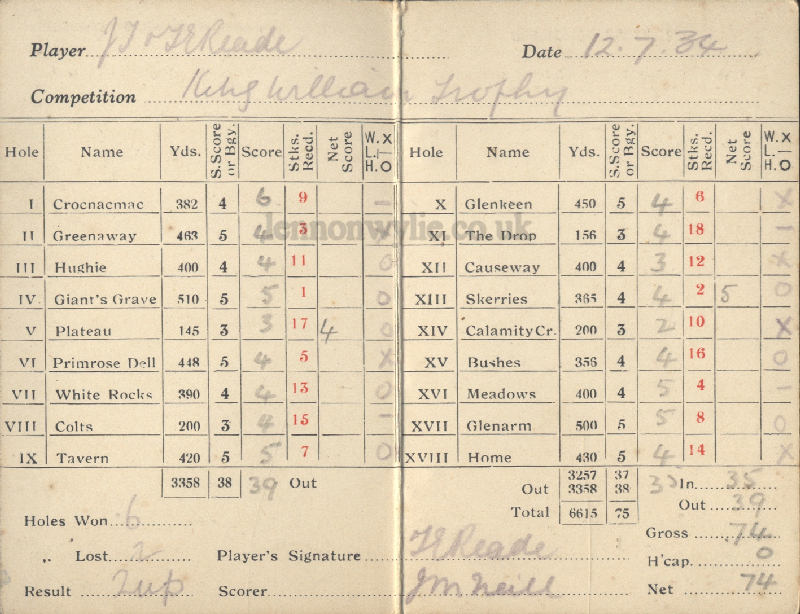 Player J T v T E Reade Date 12.7.34
Competition King William Trophy
Hole Name Yds. S.Score or Bgy. Score Stks. Recd. Net Score W. X L. – H. O Hole Name Yds. S.Score or Bgy. Score Stks. Recd. Net Score W. X L. – H. O
I Crocnacmac 382 4 6 9 – X Glenkeen 450 5 4 6 X
Jennonwylie.co.uk
II Greenaway 463 5 4 3 X XI The Drop 156 3 4 18 –
III Hughie 400 4 4 11 O XII Causeway 400 4 3 12 X
IV Giant's Grave 510 5 5 1 O XIII Skerries 365 4 4 2 5 O
V Plateau 145 3 3 17 4 O XIV Calamity Cr. 200 3 2 10 X
VI Primrose Dell 448 5 4 5 X XV Bushes 356 4 4 16 O
VII White Rocks 390 4 4 13 O XVI Meadows 400 4 5 4 –
VIII Colts 200 3 4 15 – XVII Glenarm 500 5 5 8 O
IX Tavern 420 5 5 7 O XVIII Home 430 5 4 14 X
3358 38 39 Out 3257 37 35 In 35
Out 3358 38 Out 39
Holes Won 6 Total 6615 75 Gross 74
„ Lost 2 Player's Signature T E Reade H'cap. 0
Result 2 up Scorer J McNeill Net 74